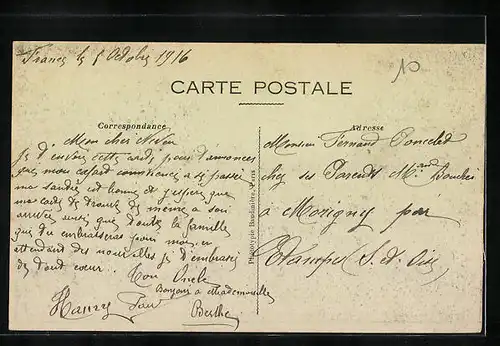 France le 5 Octobre 1916
10
CARTE POSTALE
Correspondance
Adresse
Mon cher Neveu
Je t'envoie cette carte pour t'annoncer
que mon cafard commence à se passer
ma santé est bonne et j'espère que
ma carte te de même à son
arrivée ainsi que toute la famille
que tu embrasseras pour moi, en
attendant des nouvelles je t'embrasse
de tout cœur.
Ton Oncle
Bonjour a Mademoiselle
Berthe
Monsieur Fernand Poncelet
chez ses Parents Md Boucher
a Morigny par
Etampes (S. et Oise)
Phototypie Baudinière, Paris